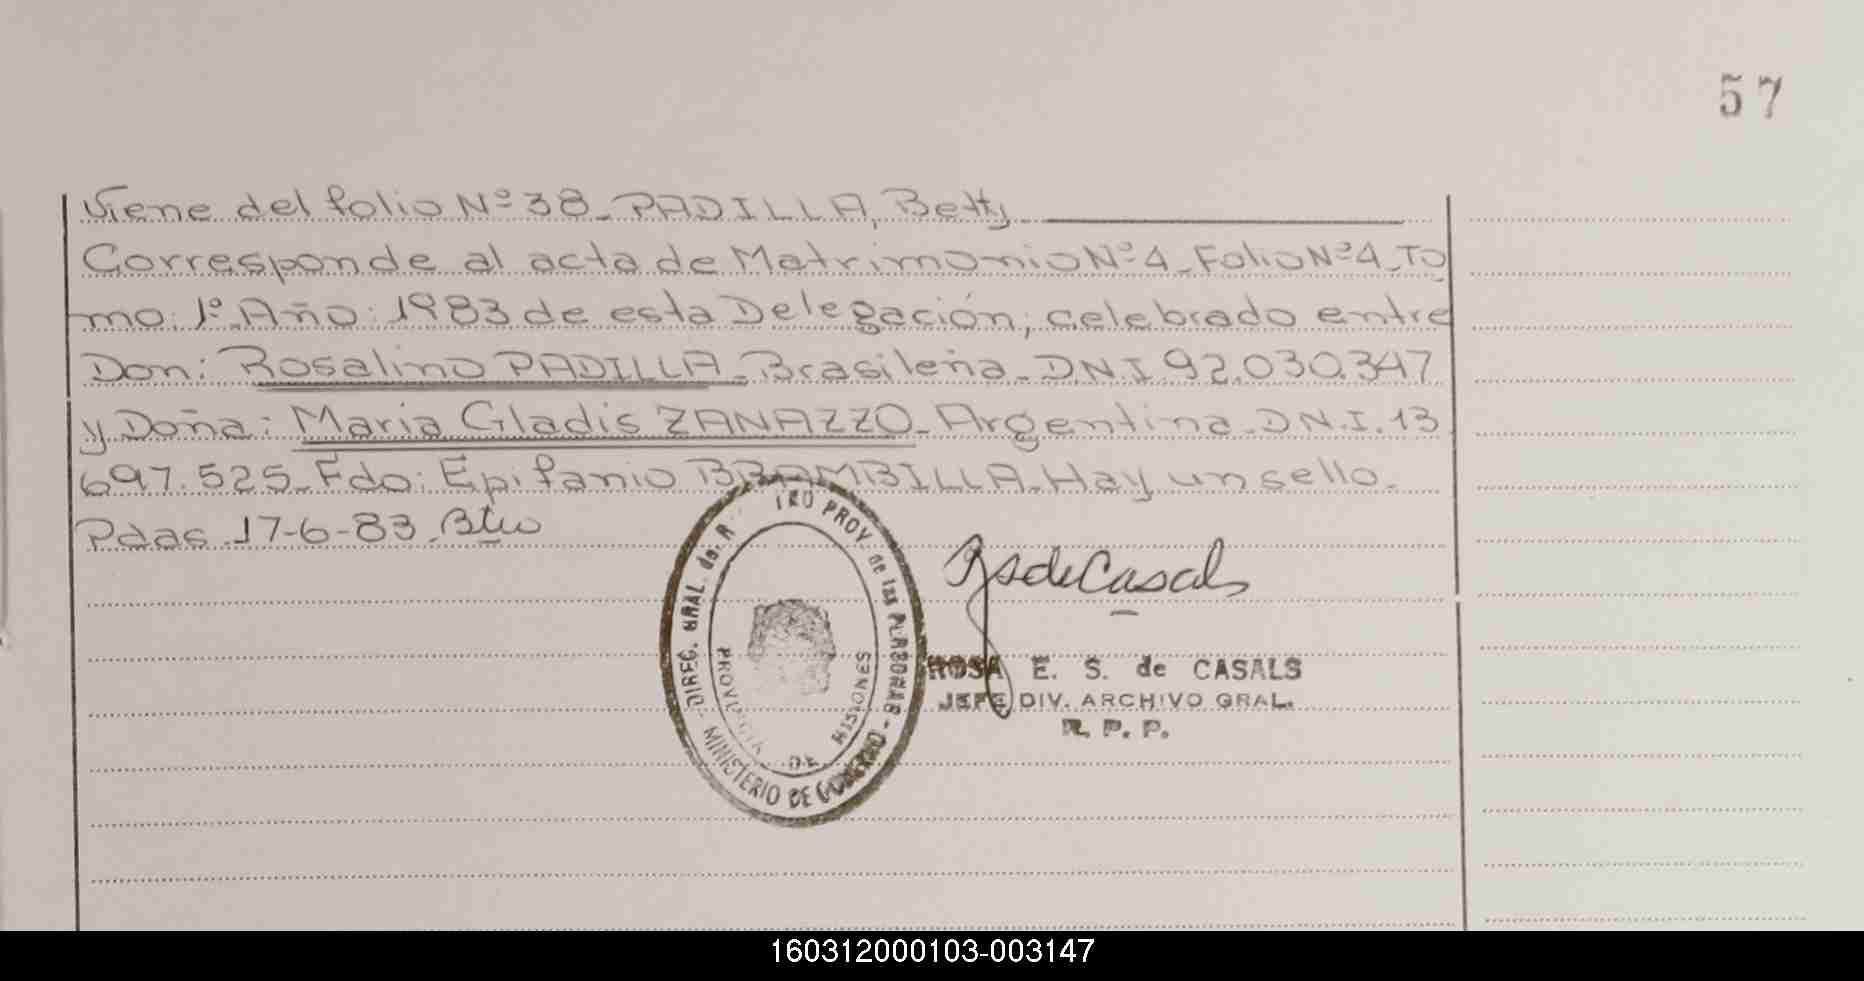 57
Viene del folio Nº 38_ PADILLA, Betty
Corresponde al acta de Matrimonio Nº 4_ Folio Nº 4_ To
mo: 1º_ Año: 1983 de esta Delegación, celebrado entre
Don: Rosalino PADILLA_ Brasileña_ D.N.I 92.030.347
y Doña: Maria Gladis ZANAZZO_ Argentina_ D.N.I. 13
697.525_ Fdo: Epifanio BRAMBILLA_ Hay un sello_
Pdas. 17-6-83_
DIREC. GRAL. de PROV. de las PERSONAS - MINISTERIO DE GOBIERNO -
PROVINCIA DE MISIONES
RS de Casals
ROSA E. S. de CASALS
JEFE DIV. ARCHIVO GRAL.
R. P. P.
160312000103-003147